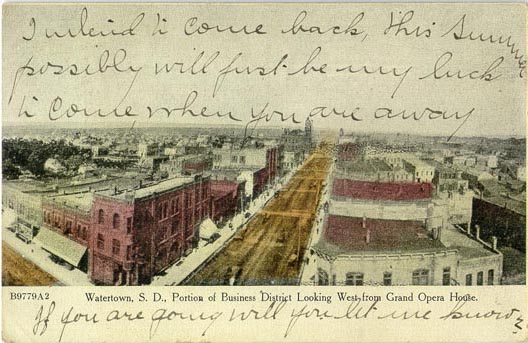 I intend to come back, this Summer
possibly will just be my luck
to come when you are away
B9779A2 Watertown, S. D., Portion of Business District Looking West from Grand Opera House.
If you are going will you let me know?